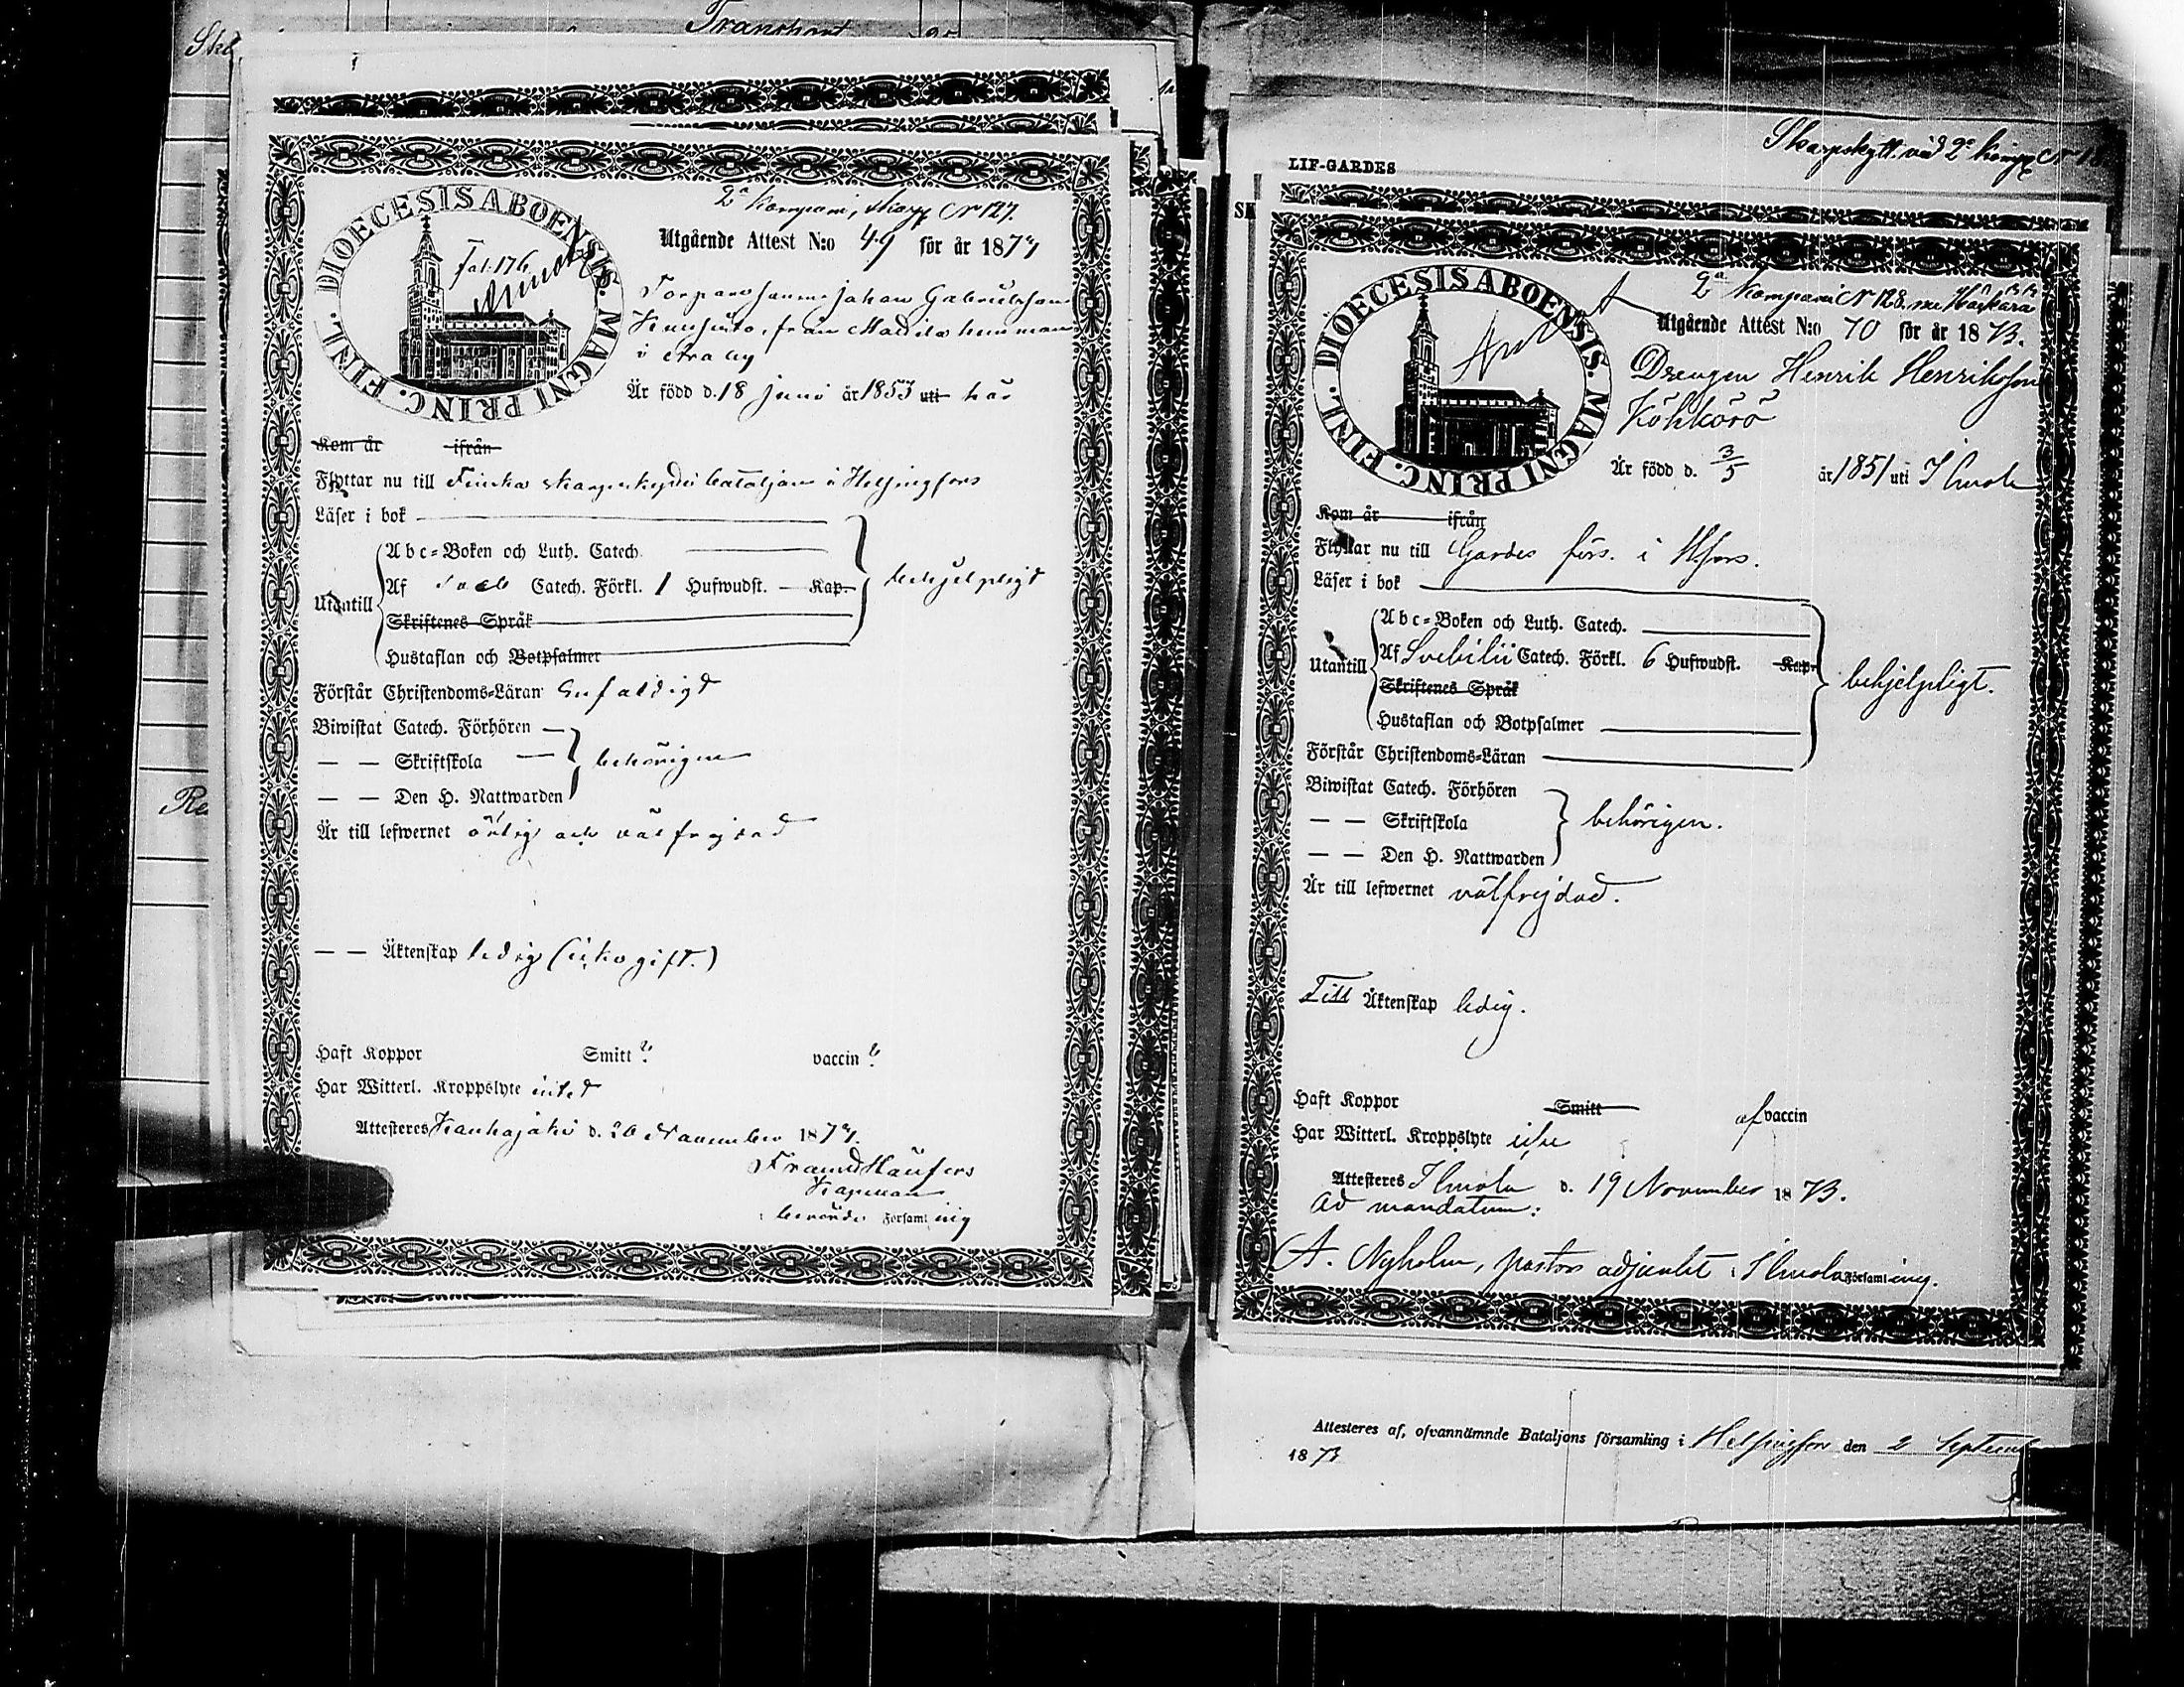 Transport
DIOECESIS ABOENSIS. MAGNI PRINC. FINL.
Fol. 176
2a Kompani, skarp N 127.
Utgående Attest N:o 49 för år 1874
Torparesonen Johan Gabrielsson
från hemman
i by
Är född d. 18 Juni år 1853 uti här
Kom år ifrån
Flyttar nu till Finska skarpskytte bataljon i Helsingfors
Läser i bok
Abc-Boken och Luth. Catech.
Utantill Af Catech. Förkl. 1 Hufwudst. Kap. behjelpligt
Skriftenes Språk
Hustaflan och Botpsalmer
Förstår Christendoms-Läran Enfaldigt
Biwistat Catech. Förhören
— — Skriftskola behörigen
— — Den H. Nattwarden
Är till lefwernet ärlig och välfrejdad
— — Äktenskap ledig (icke gift.)
Haft Koppor Smitt ? vaccin ?
Har Witterl. Kroppslyte intet
Attesteres Kauhajoki d. 26 November 1874.
Kapellan
i berörde Församling
LIF-GARDES
Skarpskytt vid 2a Komp N
DIOECESIS ABOENSIS. MAGNI PRINC. FINL.
2a Kompani N 128.
Utgående Attest N:o 70 för år 1873.
Drengen Henrik Henriksson
Köhkörö
Är född d. 3/5 år 1851 uti Ilmola
Kom år ifrån
Flyttar nu till Gardes förs. i Hfors.
Läser i bok
Abc-Boken och Luth. Catech.
Utantill Af Svebilii Catech. Förkl. 6 Hufwudst. Kap. behjelpligt.
Skriftenes Språk
Hustaflan och Botpsalmer
Förstår Christendoms-Läran
Biwistat Catech. Förhören
— — Skriftskola behörigen.
— — Den H. Nattwarden
Är till lefwernet välfrejdad.
Till Äktenskap ledig.
Haft Koppor Smitt af vaccin
Har Witterl. Kroppslyte icke
Attesteres Ilmola d. 19 November 1873.
Ad mandatum:
A. Nyholm, pastors adjunkt i Ilmola Församling.
Attesteres af, ofvannämnde Bataljons församling i Helsingfors den 2 Septemb
1873